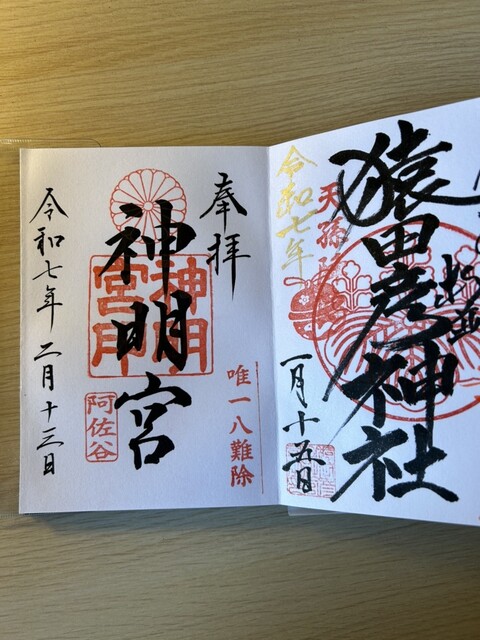 猿田彦神社
天孫
令和七年
一月十五日
奉拝
唯一八難除
神明宮
神明宮
阿佐谷
令和七年 二月十三日